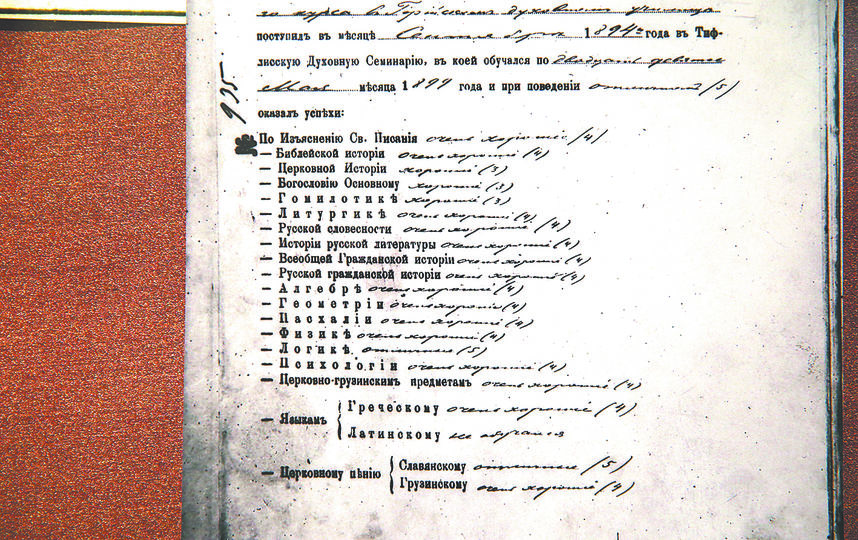 го курса в Горійскомъ духовномъ училищѣ
поступилъ въ мѣсяцѣ Сентябрѣ 1894 года въ Тиф-
лисскую Духовную Семинарію, въ коей обучался по двадцать девятое
Мая мѣсяца 1899 года и при поведеніи отличномъ (5)
оказалъ успѣхи:
935
№
По Изъясненію Св. Писанія очень хорошіе (4)
— Библейской исторіи очень хорошіе (4)
— Церковной Исторіи хорошіе (3)
— Богословію Основному хорошіе (3)
— Гомилотикѣ хорошіе (3)
— Литургикѣ очень хорошіе (4)
— Русской словесности очень хорошіе (4)
— Исторіи русской литературы очень хорошіе (4)
— Всеобщей Гражданской исторіи очень хорошіе (4)
— Русской гражданской исторіи очень хорошіе (4)
— Алгебрѣ очень хорошіе (4)
— Геометріи очень хорошіе (4)
— Пасхаліи очень хорошіе (4)
— Физикѣ очень хорошіе (4)
— Логикѣ отличные (5)
— Психологіи очень хорошіе (4)
— Церковно-грузинскимъ предметамъ очень хорошіе (4)
— Языкамъ { Греческому очень хорошіе (4)
Латинскому не обучался
— Церковному пѣнію { Славянскому отличные (5)
Грузинскому очень хорошіе (4)